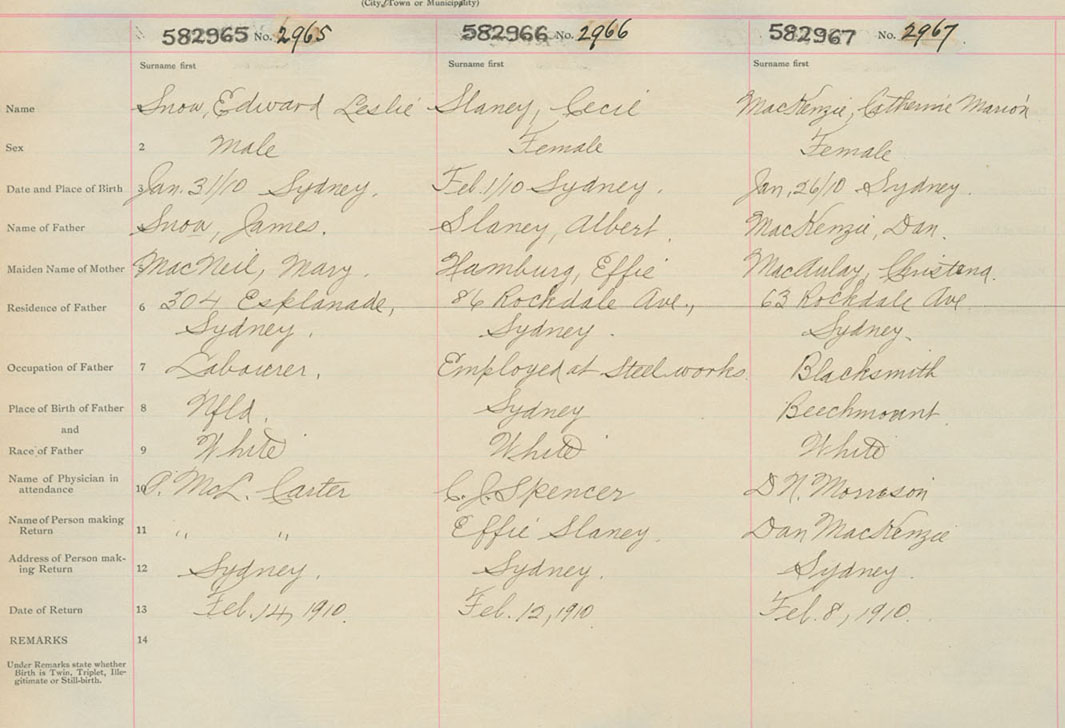 (City, Town or Municipality)
582965 No. 2965 582966 No. 2966 582967 No. 2967
Surname first Surname first Surname first
Name Snow, Edward Leslie Slaney, Cecil MacKenzie, Catherine Marion
Sex 2 Male Female Female
Date and Place of Birth 3 Jan. 31/10 Sydney. Feb. 1/10 Sydney. Jan. 26/10 Sydney.
Name of Father Snow, James. Slaney, Albert. MacKenzie, Dan.
Maiden Name of Mother 5 MacNeil, Mary. Hamburg, Effie MacAulay, Christena.
Residence of Father 6 304 Esplanade, 86 Rockdale Ave., 63 Rockdale Ave
Sydney. Sydney. Sydney.
Occupation of Father 7 Labourer. Employed at Steel works. Blacksmith
Place of Birth of Father 8 Nfld. Sydney Beechmount.
and
Race of Father 9 White White White
Name of Physician in
attendance 10 P. McL. Carter C. J. Spencer D N. Morrison
Name of Person making
Return 11 " " Effie Slaney. Dan MacKenzie
Address of Person mak-
ing Return 12 Sydney. Sydney. Sydney.
Date of Return 13 Feb. 14, 1910. Feb. 12, 1910. Feb. 8, 1910.
REMARKS 14
Under Remarks state whether
Birth is Twin, Triplet, Ille-
gitimate or Still-birth.